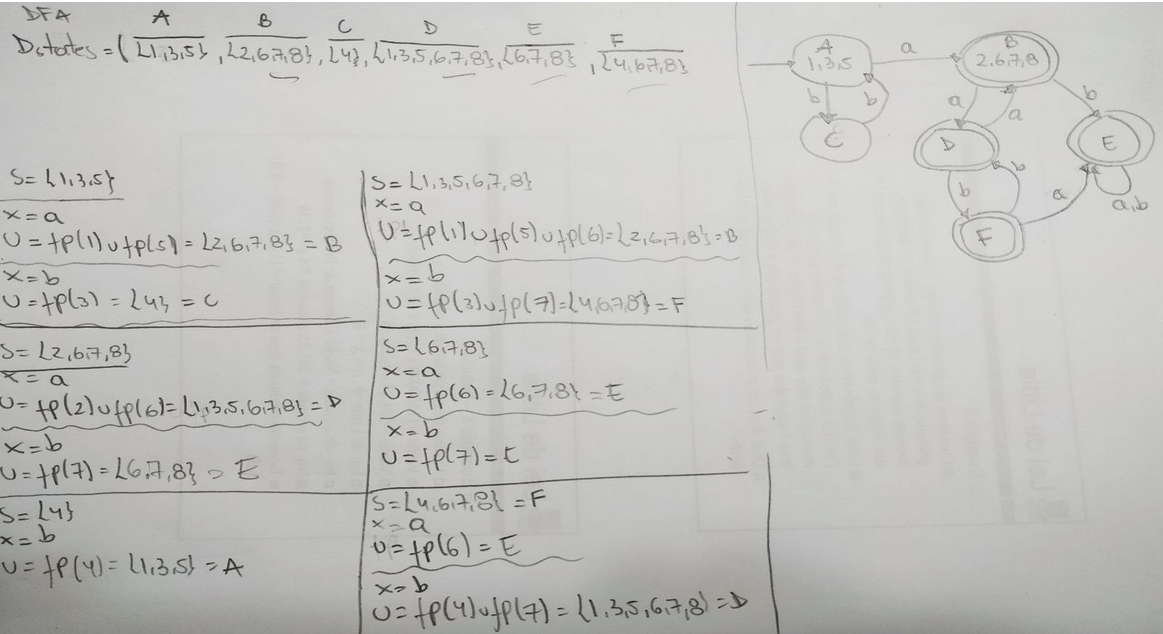 DFA
A B C D E F
Dstates = { {1,3,5}, {2,6,7,8}, {4}, {1,3,5,6,7,8}, {6,7,8}, {4,6,7,8}
S = {1,3,5}
x = a
U = fp(1) ∪ fp(5) = {2,6,7,8} = B
x = b
U = fp(3) = {4} = C
S = {2,6,7,8}
x = a
U = fp(2) ∪ fp(6) = {1,3,5,6,7,8} = D
x = b
U = fp(7) = {6,7,8} = E
S = {4}
x = b
U = fp(4) = {1,3,5} = A
S = {1,3,5,6,7,8}
x = a
U = fp(1) ∪ fp(5) ∪ fp(6) = {2,6,7,8} = B
x = b
U = fp(3) ∪ fp(7) = {4,6,7,8} = F
S = {6,7,8}
x = a
U = fp(6) = {6,7,8} = E
x = b
U = fp(7) = E
S = {4,6,7,8} = F
x = a
U = fp(6) = E
x = b
U = fp(4) ∪ fp(7) = {1,3,5,6,7,8} = D
A
1,3,5
a
B
2,6,7,8
b
b
a
a
b
C
D
E
b
b
a
a,b
F